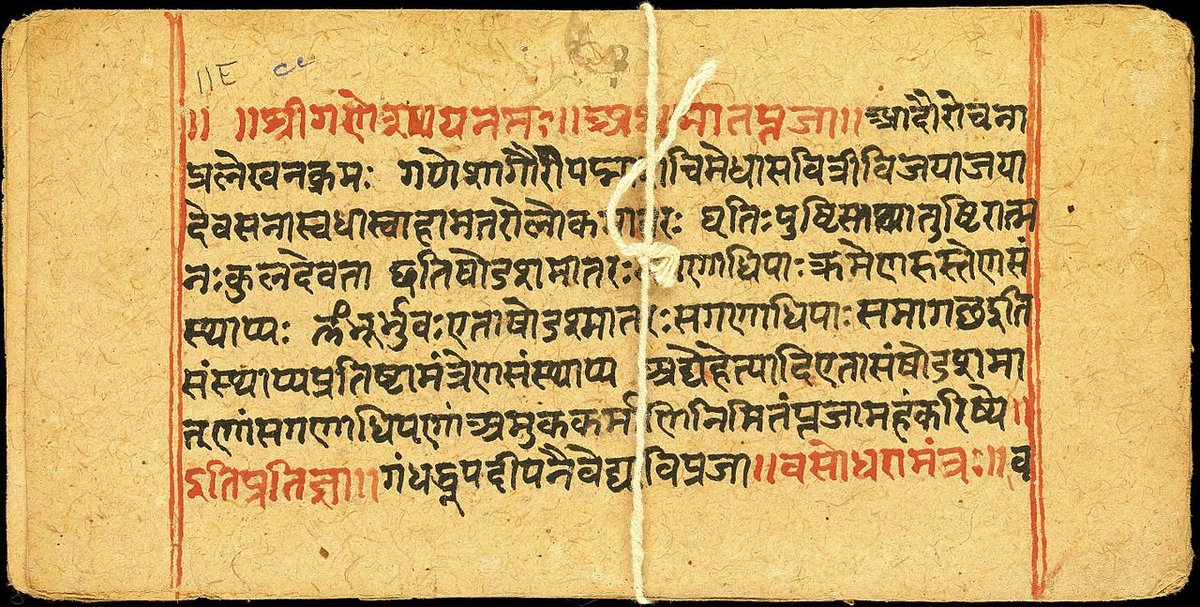 11E cc
॥ ॥श्रीगणेशाययनमः॥ मातृपूजा॥ आदौरोचना
प्रलेखनक्रमः गणेशागौरीपद्मा चिमेधासवित्रीविजयाजया
देवसेनास्वधास्वाहामातरोलोक धृतिःपुष्टिस्तथातुष्टिरात्म
नःकुलदेवता षोडशमातरः गणाधिपाः क्रमेणहस्तेणसं
स्थाप्यः भूर्भुवःएताषोडशमातरःसगणाधिपाःसमागछइति
संस्थाप्यप्रतिष्टामंत्रेणसंस्थाप्य अद्येहेत्यादिएतासंषोडशमा
तृणांसगणाधिपणांअमुककर्मणिनिमितंपूजामहंकरिष्ये॥
इतिप्रतिज्ञा॥ गंधधूपदीपनैवेद्य विपूजा॥वसोधरामंत्रः॥व